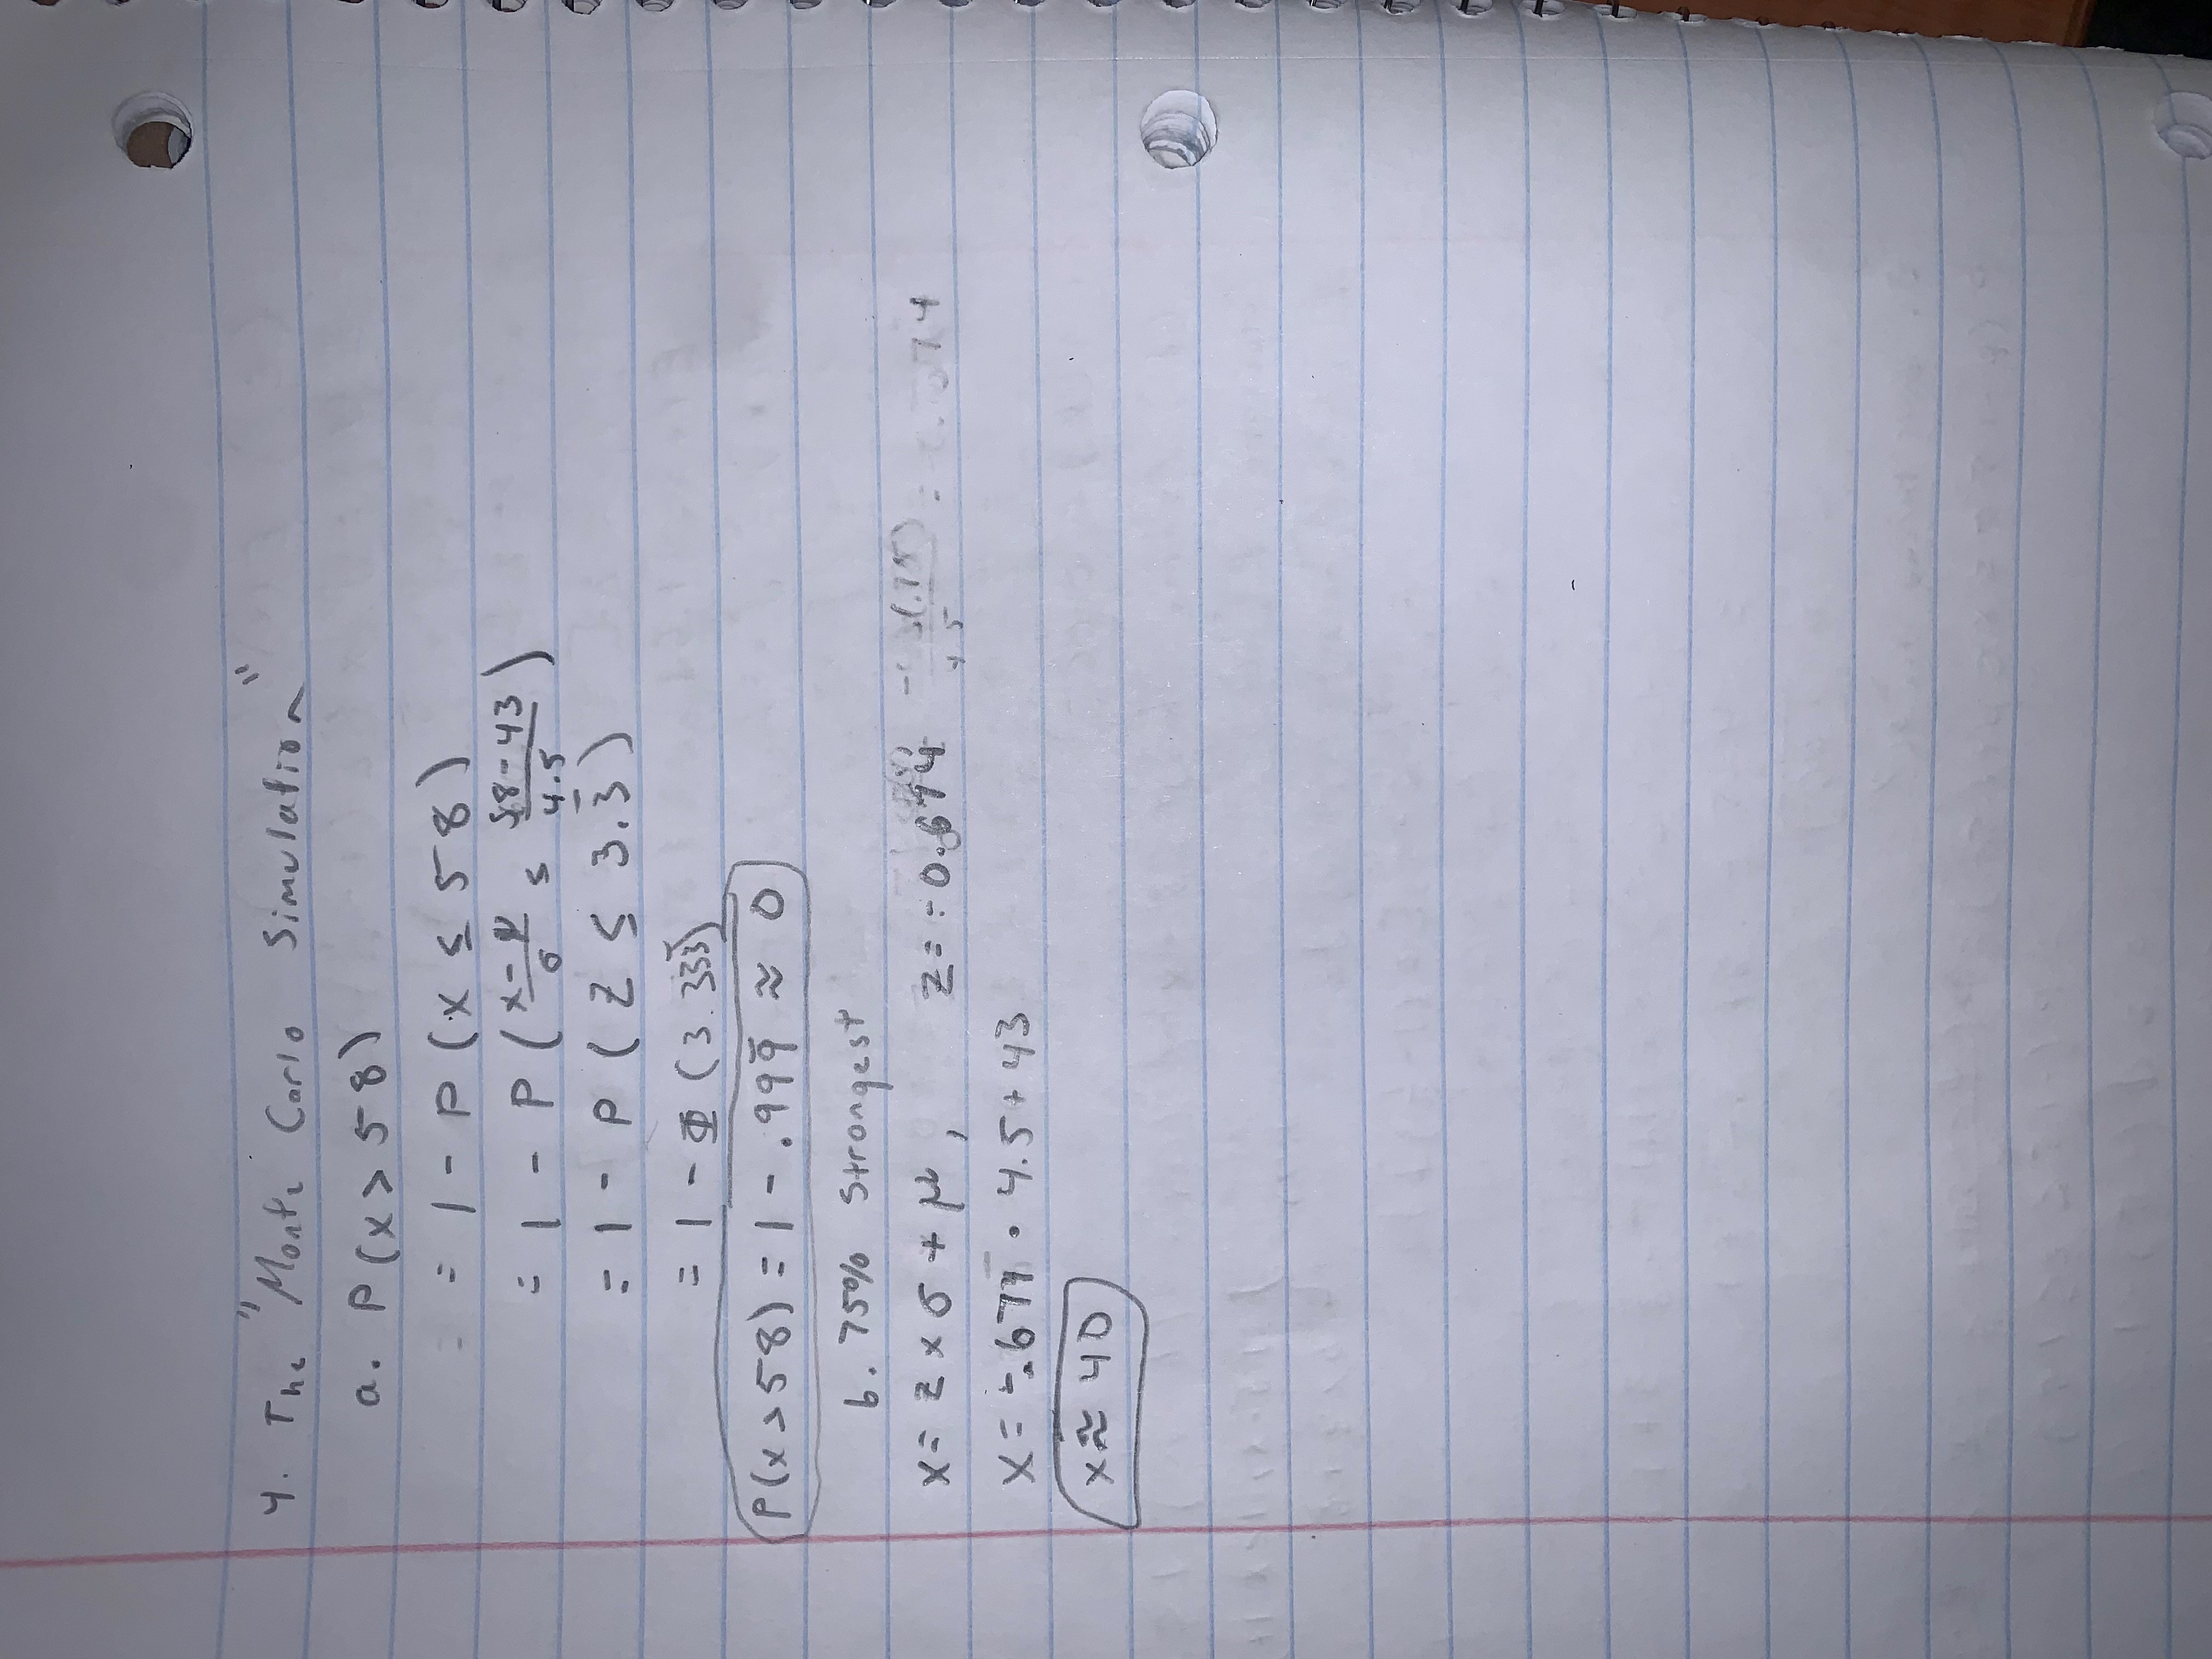 4. The "Monte Carlo Simulation"
a. P(x > 58)
= 1 - P(x ≤ 58)
= 1 - P((x-μ)/σ ≤ (58-43)/4.5)
= 1 - P(Z ≤ 3.3̄)
= 1 - Φ(3.333̄)
P(x>58) = 1 - .999̄ ≈ 0
b. 75% Strongest
x = z × σ + μ, z = -0.674
x = -.674 · 4.5 + 43
x ≈ 40